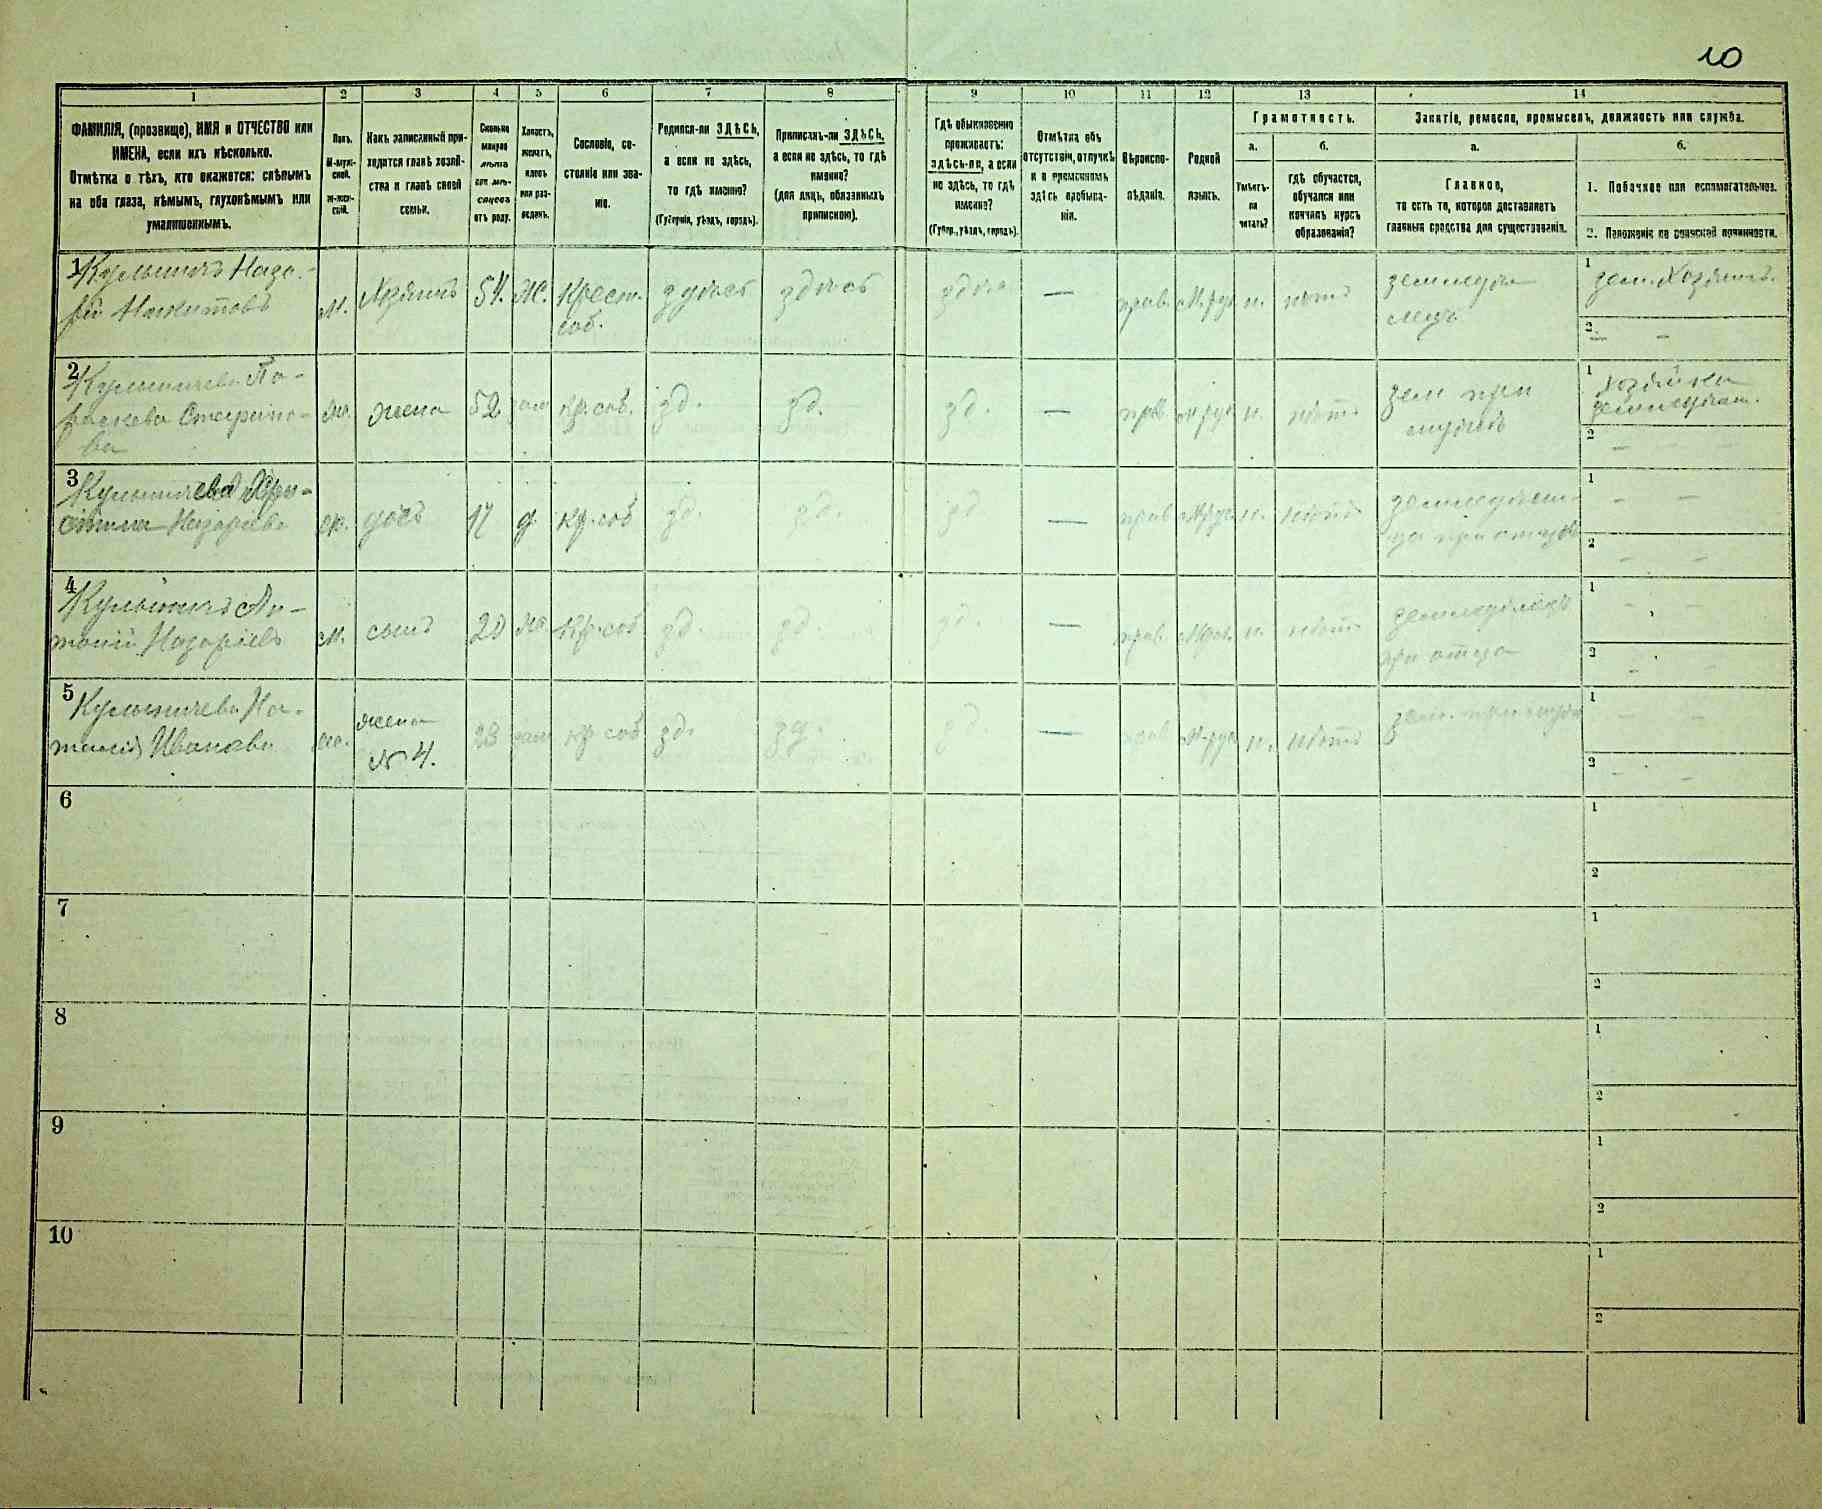 10
1 2 3 4 5 6 7 8 9 10 11 12 13 14
ФАМИЛІЯ, (прозвище), ИМЯ и ОТЧЕСТВО или
ИМЕНА, если ихъ нѣсколько.
Отмѣтка о тѣхъ, кто окажется: слѣпымъ
на оба глаза, нѣмымъ, глухонѣмымъ или
умалишеннымъ.
Полъ.
М-муж-
ской.
Ж-жен-
скій.
Какъ записанный при-
ходится главѣ хозяй-
ства и главѣ своей
семьи.
Сколько
минуло
лѣтъ
или мѣ-
сяцевъ
отъ роду.
Холостъ,
женатъ,
вдовъ
или раз-
веденъ.
Сословіе, со-
стояніе или зва-
ніе.
Родился-ли ЗДѢСЬ,
а если не здѣсь,
то гдѣ именно?
(Губернія, уѣздъ, городъ).
Приписанъ-ли ЗДѢСЬ,
а если не здѣсь, то гдѣ
именно?
(для лицъ, обязанныхъ
припискою).
Гдѣ обыкновенно
проживаетъ:
здѣсь-ли, а если
не здѣсь, то гдѣ
именно?
(Губер., уѣздъ, городъ).
Отмѣтка объ
отсутствіи, отлучкѣ
и о временномъ
здѣсь пребыва-
ніи.
Вѣроиспо-
вѣданіе.
Родной
языкъ.
Грамотность.
а.
Умѣетъ-
ли
читать?
б.
гдѣ обучается,
обучался или
кончилъ курсъ
образованія?
Занятіе, ремесло, промыселъ, должность или служба.
а.
Главное,
то есть то, которое доставляетъ
главныя средства для существованія.
б.
1. Побочное или вспомогательное.
2. Положеніе по воинской повинности.
1 Кулыничъ Наза-
рій Никитовъ
м. Хозяинъ 54. Ж. Крест.
соб. здѣсь здѣсь здѣсь — прав. М.рус н. нѣтъ земледѣ
лецъ
1 зем. Хозяинъ.
2 –
2 Кулыничева Па-
раскева
ва
ж. жена 52 зам кр.соб. зд. зд. зд. — прав м.рус н. нѣтъ зем при
мужѣ
1 хозяйка
2 –
3 Кулыничева Хри-
стина Назарьева
ж. дочь 17 д кр.соб зд. зд. зд — прав М.рус н. нѣтъ
1 – –
2 – –
4 Кулыничъ Ан-
тоній Назаріевъ
м. сынъ 20 же. Кр.соб зд. зд. зд. — прав. М.рус. н. нѣтъ земледѣлецъ
при отцѣ
1 – –
2 – –
5 Кулыничева На-
талія Иванова
ж. жена
№ 4. 23 зам кр соб зд. зд. зд. — прав М.рус н. нѣтъ зем. при мужѣ
1 – –
2 – –
6 1
2
7 1
2
8 1
2
9 1
2
10 1
2